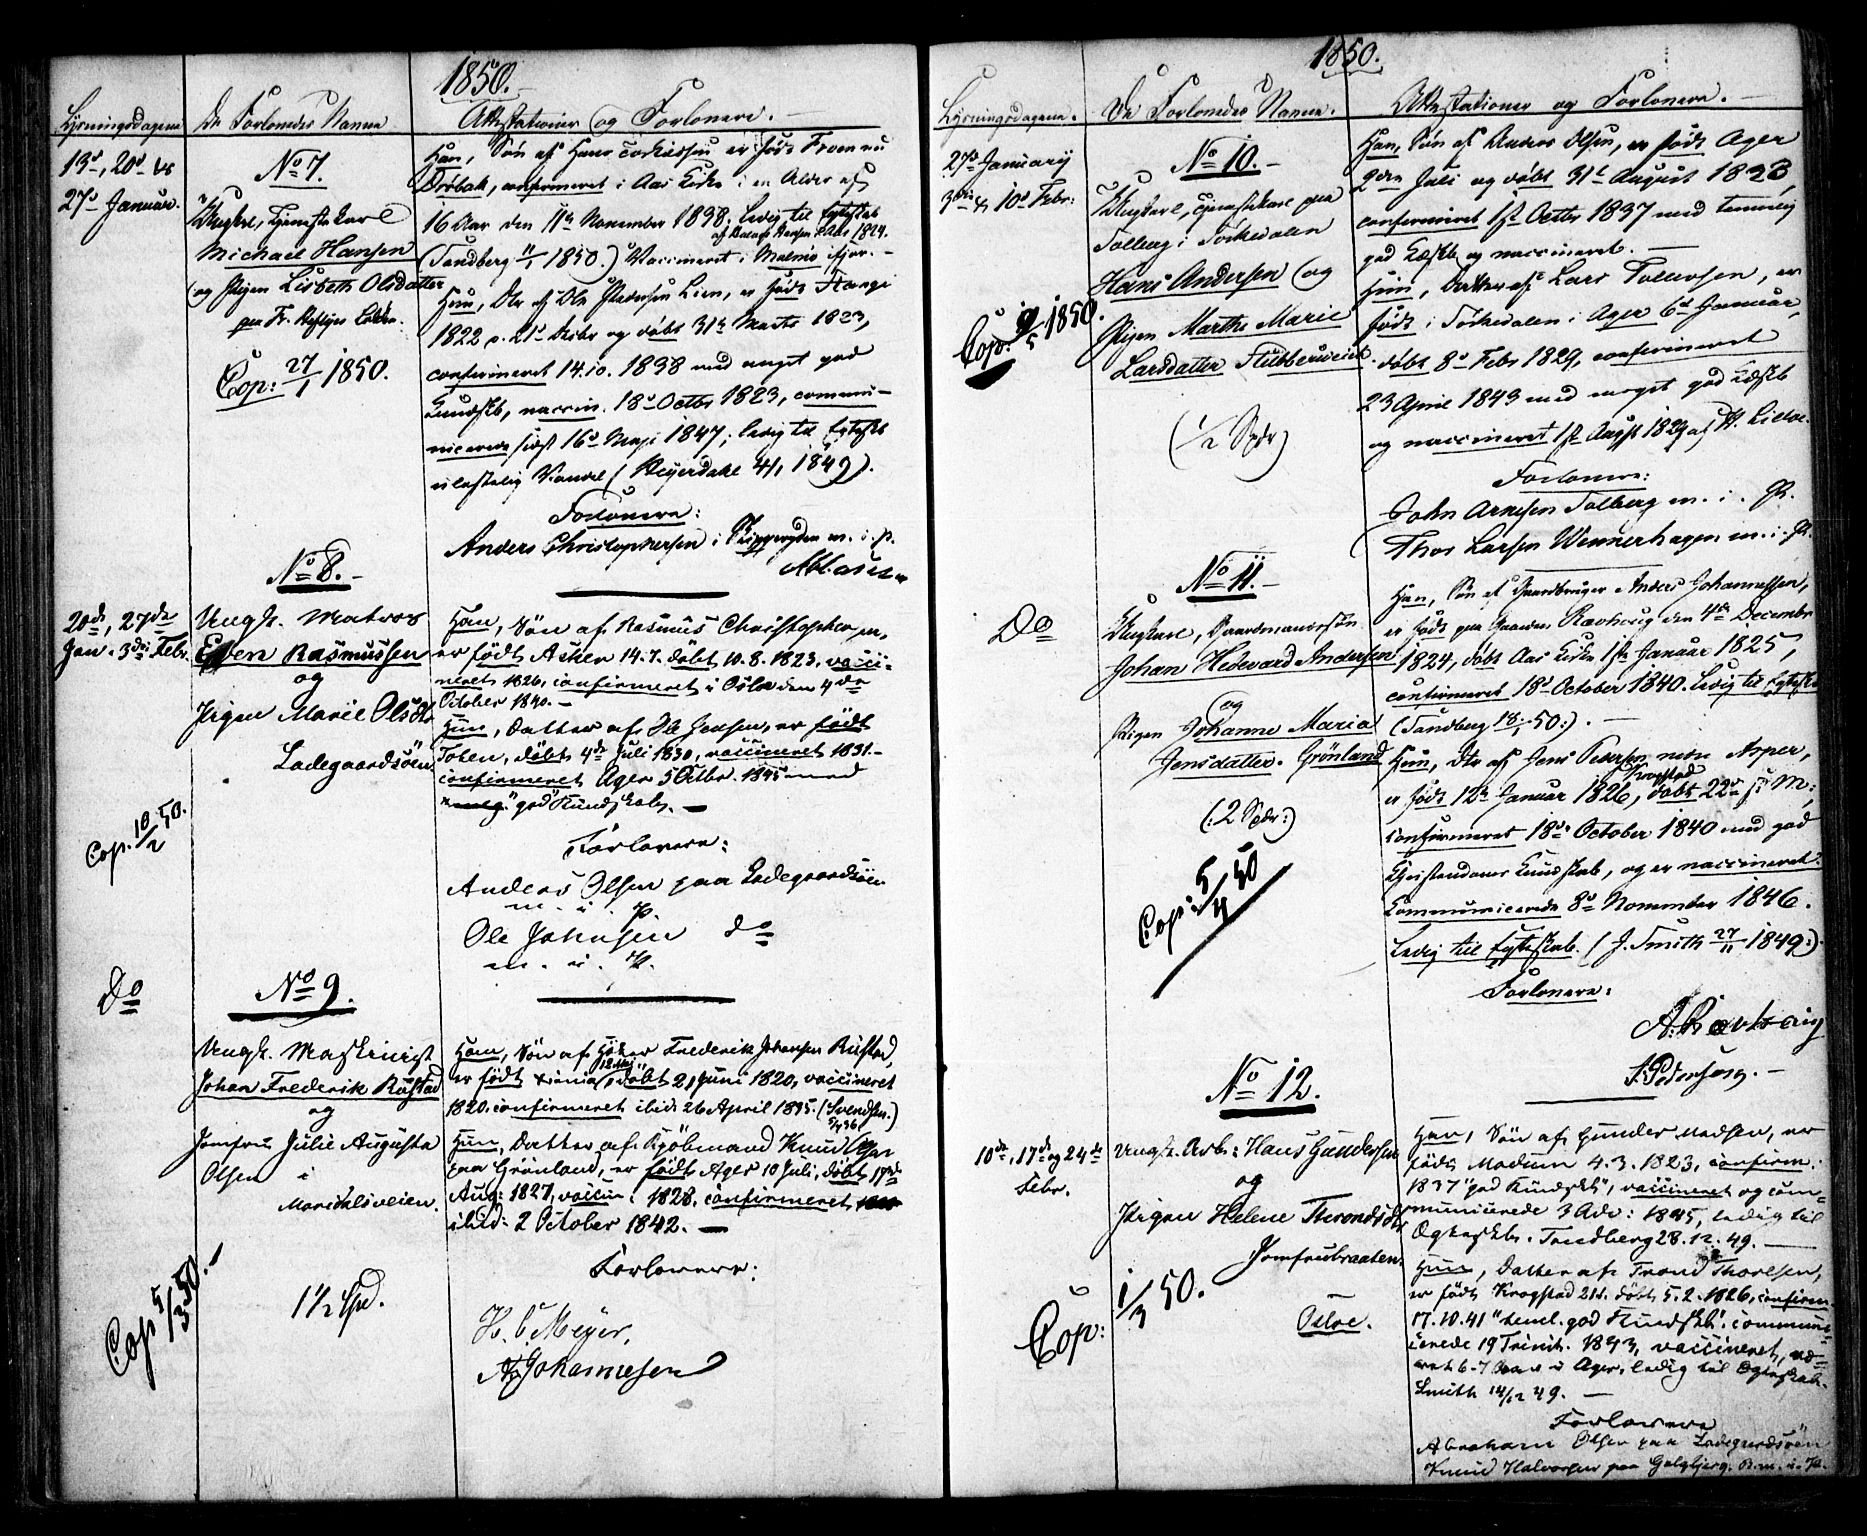 1850.
Lysningsdagene
De Forlovedes Navne
Attestationer og Forlovere.
13de, 20de &
27de Januar.
No 7.
Ungkarl, Tjenestekarl
Michael Hansen
og Pigen Lisbeth Olsdatter
paa Fr.
Cop: 27/1 1850.
Han, Søn af Hans er født Froen nu
Drøbak, confirmeret i Aas Kirke i en Alder af
16 Aar den 11te November 1838, ledig til Egteskab
(Sandberg 11/1 1850.) Vaccineret i Malmø ifjor. -
Hun, Dtr af Ole Pedersen Lien, er født Stange
1822 d. 21de Decbr og døbt 31te Marts 1823,
confirmeret 14.10. 1838 med meget god
Kundskb, vaccin. 18de Octbr 1823, commu-
nicerede sidst 16de Maji 1847; ledig til Egteskb
ulastelig Vandel (Heyerdahl 4/1 1849).
Forlovere:
Anders Christophersen i m. i. p.
No 8.
20de, 27de
Jan. 3die Febr.
Ungk. Matros
Even Rasmussen
og
Pigen Marie Olsdtr
Ladegaardsøen
Cop. 10/2 50.
Han, Søn af Rasmus Christophersen,
er født Asker 14.7. døbt 10.8.1823, vacci-
neret 1826, confirmeret i Oslo den 4de
October 1840. -
Hun, Datter af Ole Jensen, er født
Toten, døbt 4de Juli 1830, vaccineret 1831. -
confirmeret Ager 5 Octbr. 1845 med
"meg." god Kundskab. -
Forlovere:
Anders Olsen paa Ladegaardsøen
m. i. P.
Ole Johnsen do
m. i. P.
do
No 9.
Ungk. Maskinist
Johan Frederik Rustad
og
Jomfru Julie Augusta
Olsen i
Maridalsveien.
1 1/2 Spd.
Cop 5/3 50. -
Han, Søn af Høker Frederik Johansen Rustad,
er født Xiania 12 Maj døbt 21 Juni 1820, vaccineret
1820. confirmeret ibid. 26 April 1835. (Svendsen.)
Hun, Datter af Kjøbmand Knud Olsen
paa Grønland, er født Ager 10 Juli, døbt 17de
Aug: 1827, vaccin: 1828. confirmeret
ibid: 2 October 1842. -
Forlovere:
H. C. Meyer.
A. Johannesen
1850.
Lysningsdagene.
De Forlovedes Navne.
Attestationer og Forlovere.
27de January
3die & 10de Febr:
No 10. -
Ungkarl, Tjenestekarl paa
Solberg i Sørkedalen
Hans Andersen og
Pigen Marthe Marie
Larsdatter Stubberveien
(1/2 Spdr)
Cop: 9/5 1850.
Han, Søn af Anders Olsen, er født Ager
2den Juli og døbt 31te August 1823,
confirmeret 1ste Octbr 1837 med temmelig
god Kdskb og vaccineret.
Hun, Datter af Lars Tollevsen, er
født i Sørkedalen i Ager 6te Januar,
døbt 8de Febr 1829, confirmeret
23 April 1843 med meget god Kdskb
og vaccineret 1ste Augst 1829 af
Forlovere:
John Arnesen Solberg m. i. P.
Thor Larsen Wennerhagen m. i. P.
Do
No 11. -
Ungkarl, Gaardmandssøn
Johan Hedevard Andersen
og
Pigen Johanne Maria
Jensdatter. Grønland
(:2 Spdr:)
Cop: 5/4 50
Han, Søn af Gaardbruger Anders Johannessen,
er født paa Gaarden Ravhoug den 4de Decembr
1824, døbt Aas Kirke 1ste Januar 1825,
confirmeret 18de October 1840. Ledig til Egteskb
(Sandberg 18/1 50:). -
Hun, Dtr af Jens Pedersen nedre Asper,
Krogstad
er født 12te Januar 1826, døbt 22de s. M:,
confirmeret 18de October 1840 med god
Christendoms Kundskab, og er vaccineret.
Communicerede 8de November 1846.
Ledig til Egteskab. (J. Smith 27/11 1849:).
Forlovere:
A. Ravhoug
J. Pedersen. -
No 12.
10de, 17de og 24de
Febr.
Ungk. Arb: Hans Gundersen
og
Pigen Helene Throndsdtr
Jomfrubraaten
Osloe.
Cop: 1/3 50.
Han, Søn af Gunder Madsen, er
født Modum 4.3.1823, confirm:
1837 "god Kundskb", vaccineret og com-
municerede 3 Adv: 1845, ledig til
Ægteskb. Sandberg 28.12.49. -
Hun, Datter af Trond Thorsen,
er født Krogstad 21.1. døbt 5.2.1826, confirm.
17.10.41 "teml. god Kundskb". commun-
icerede 19 Trinit. 1843, vaccineret, væ-
ret 6-7 Aar i Ager, ledig til Ægteskab.
Smith 14/12 49. -
Forlovere
Abraham Olsen paa Ladegaardsøen
Knud Halvorsen paa Galgebjerg. B. m. i. P.